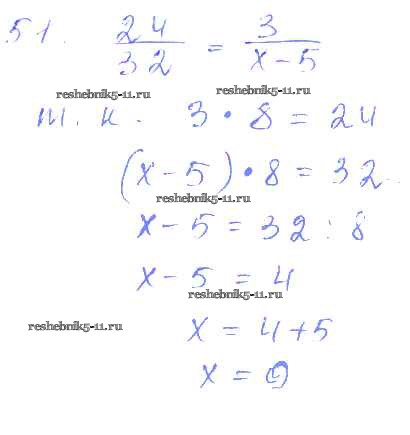 51. 24/32 = 3/(x-5)
reshebnik5-11.ru reshebnik5-11.ru
т. к. 3 • 8 = 24
(x-5) • 8 = 32
reshebnik5-11.ru
x-5 = 32 : 8
x-5 = 4
reshebnik5-11.ru
reshebnik5-11.ru
x = 4+5
x = 9